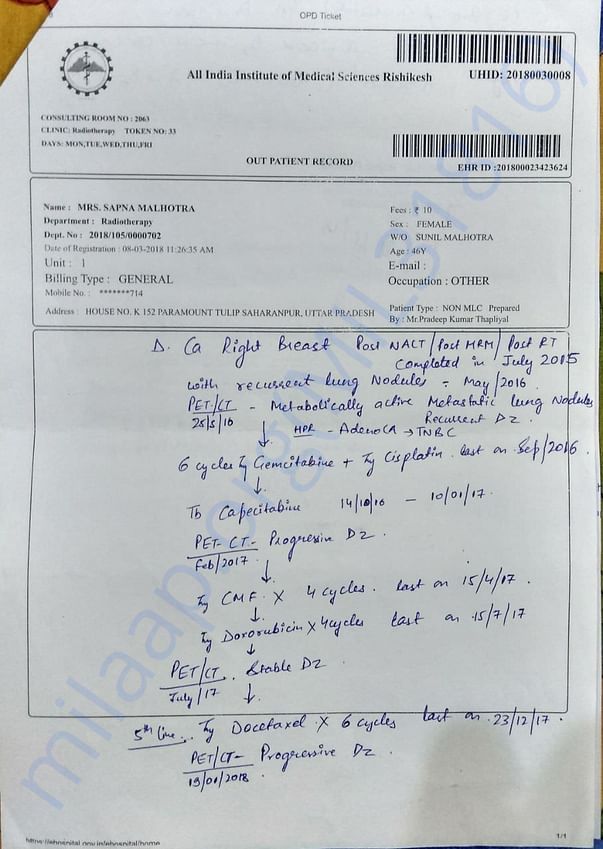 OPD Ticket
All India Institute of Medical Sciences Rishikesh
UHID: 20180030008
CONSULTING ROOM NO : 2063
CLINIC: Radiotherapy TOKEN NO: 33
DAYS: MON,TUE,WED,THU,FRI
OUT PATIENT RECORD
EHR ID :201800023423624
Name : MRS. SAPNA MALHOTRA
Department : Radiotherapy
Dept. No : 2018/105/0000702
Date of Registration : 08-03-2018 11:26:35 AM
Unit : 1
Billing Type : GENERAL
Mobile No. : *******714
Address : HOUSE NO. K 152 PARAMOUNT TULIP SAHARANPUR, UTTAR PRADESH
Fees : ₹ 10
Sex : FEMALE
W/O SUNIL MALHOTRA
Age : 46Y
E-mail :
Occupation : OTHER
Patient Type : NON MLC Prepared
By : Mr.Pradeep Kumar Thapliyal
Δ. Ca Right Breast Post NACT/Post MRM/Post RT
Completed in July 2015
with recurrent lung Nodules - May/2016.
PET/CT - Metabolically active Metastatic lung Nodules
25/5/16 Recurrent Dz.
↓ HPR - AdenoCA → TNBC
6 cycles Inj Gemcitabine + Inj Cisplatin. last on Sep/2016.
↓
Tb Capecitabine 14/10/16 - 10/01/17.
PET-CT- Progressive Dz.
Feb/2017
↓
Inj CMF X 4 cycles. last on 15/4/17.
↓
Inj Dororubicin X 4 cycles last on 15/7/17
↓
PET/CT. Stable Dz.
July/17 ↓
5th line.. Inj Docetaxel X 6 cycles last on 23/12/17.
PET/CT- Progressive Dz.
19/01/2018.
milaap.org
1/1